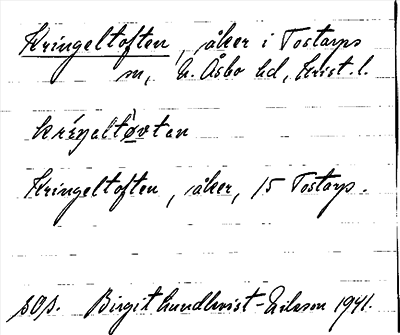 Kringeltoften, åker i Tostarps
sn, N. Åsbo hd, Krist. l.
kréŋaltòvtan
Kringeltoften, åker, 15 Tostarp.
sOs. Birgit Lundkvist-Nilsson 1941.